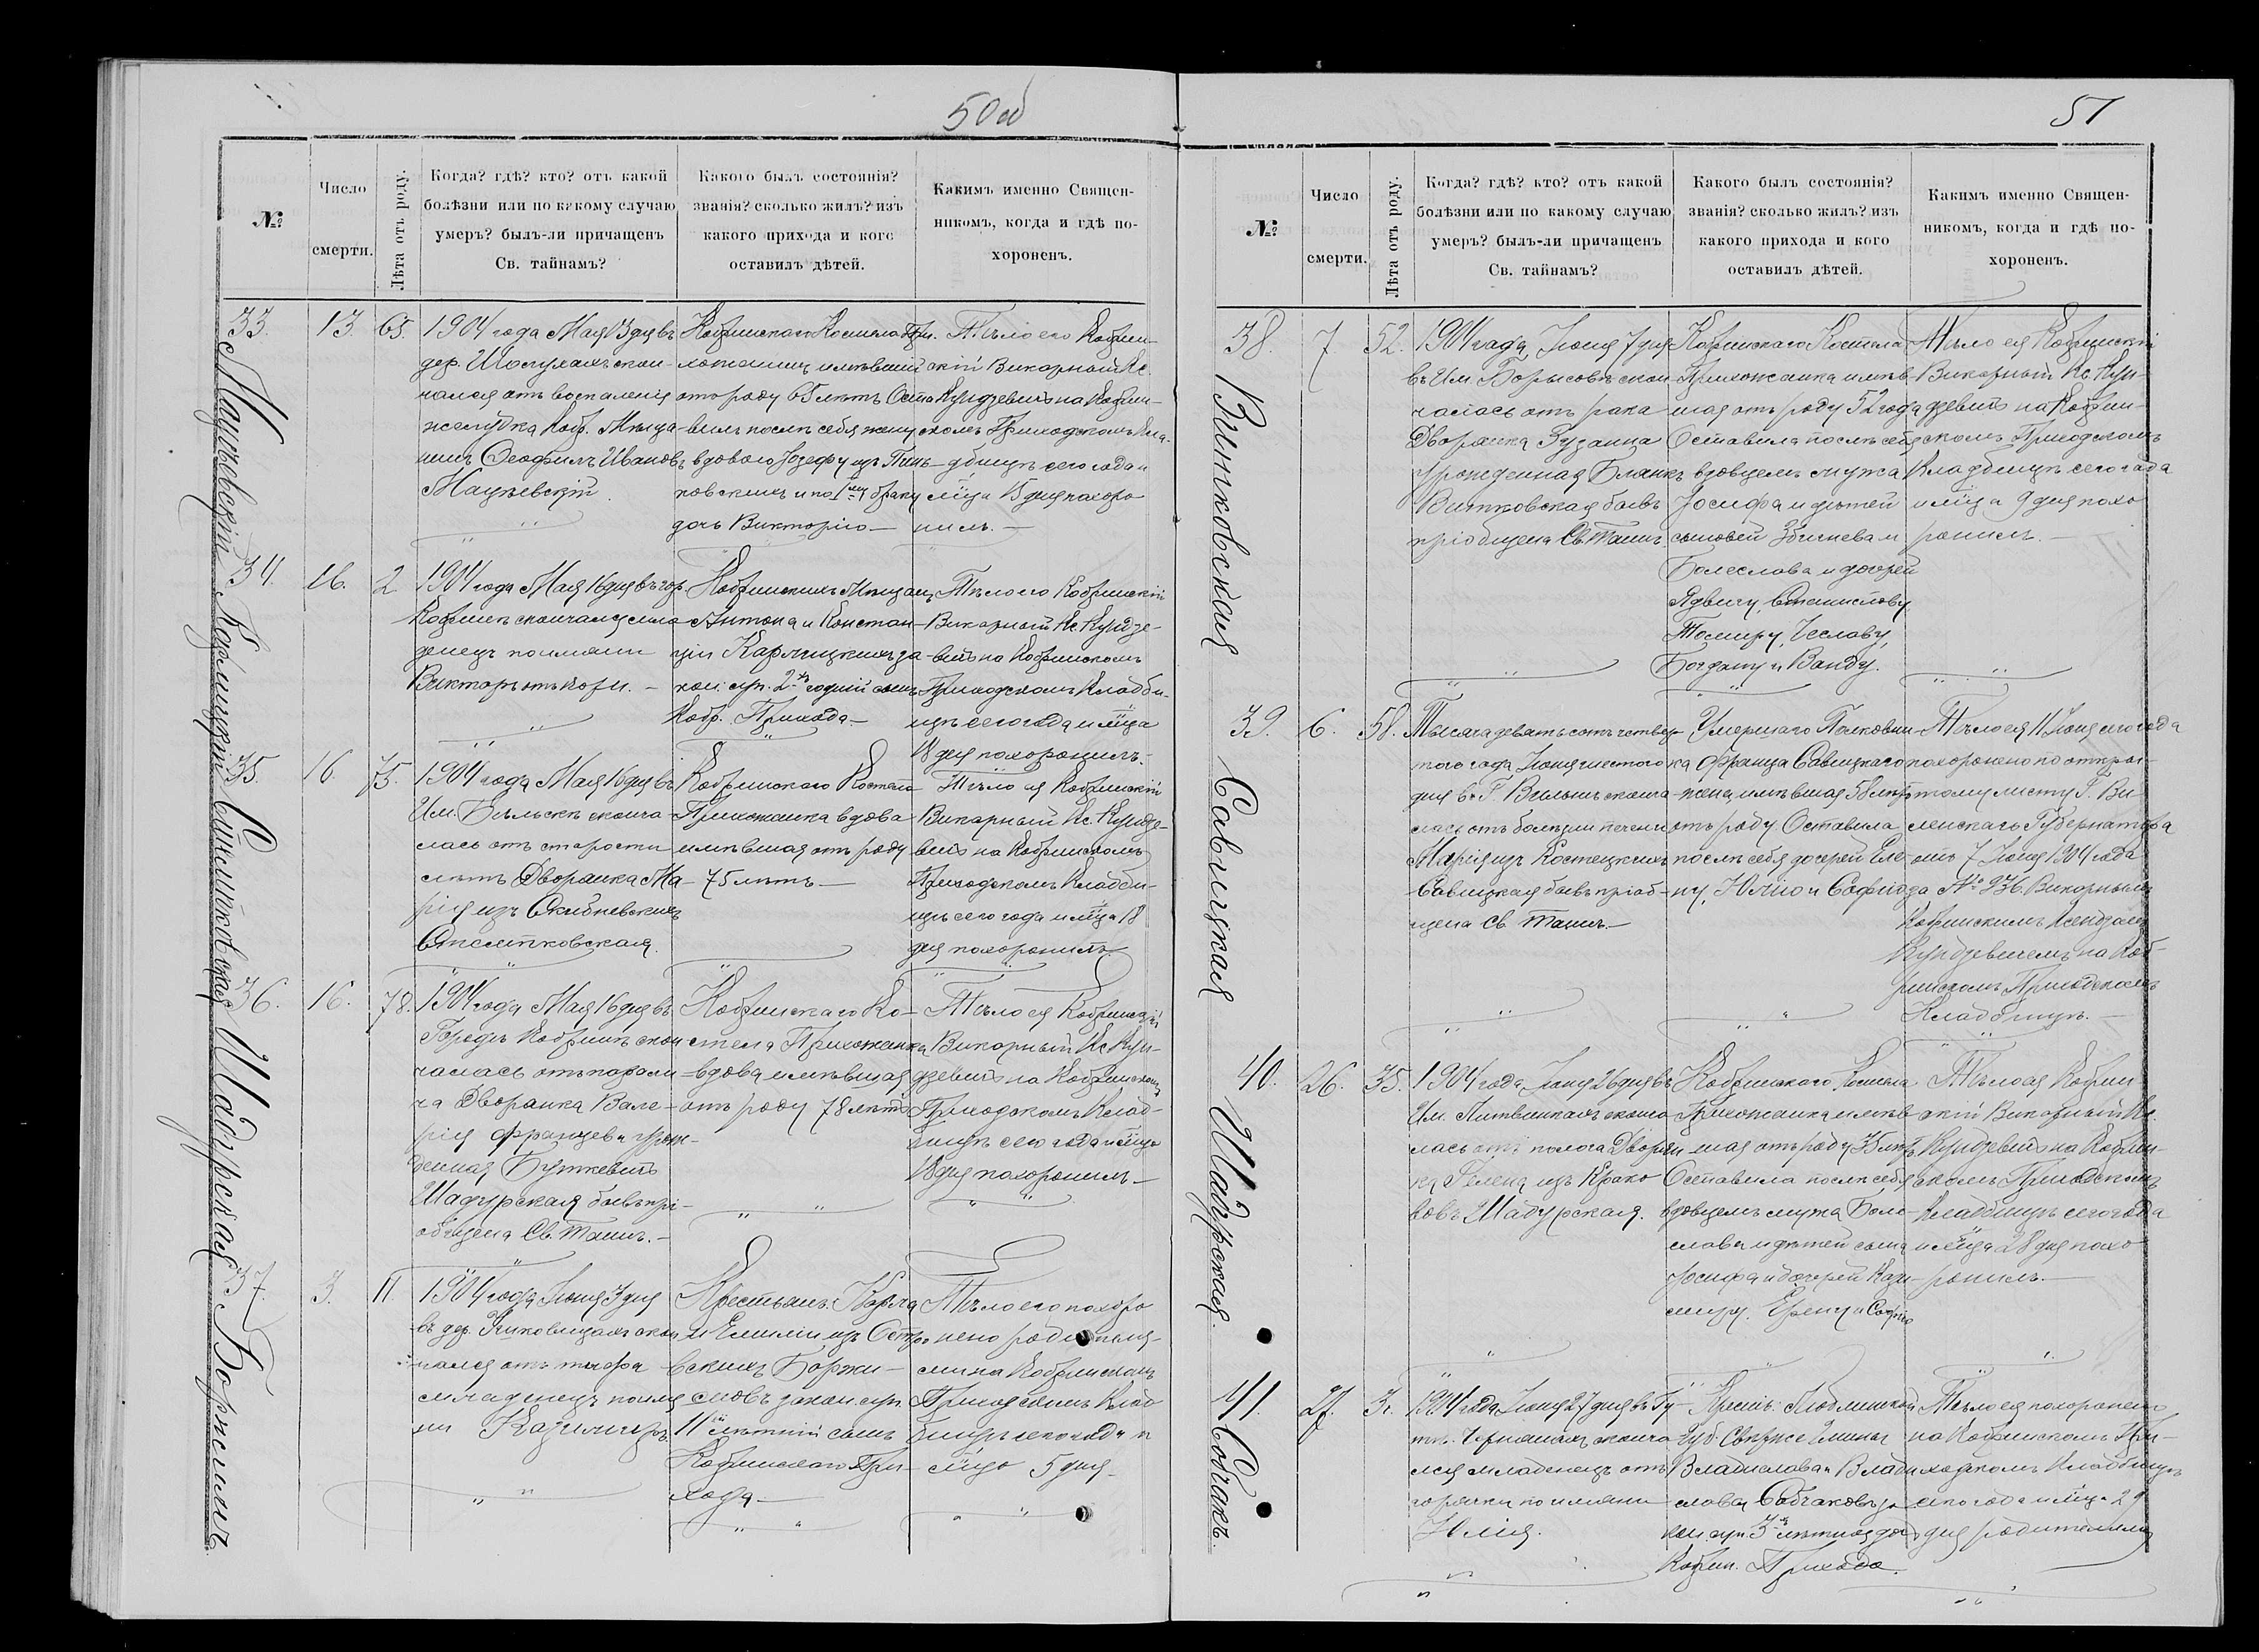 50об
№
Число
смерти.
Лѣта отъ роду.
Когда? гдѣ? кто? отъ какой
болѣзни или по какому случаю
умеръ? былъ-ли причащенъ
Св. тайнамъ?
Какого былъ состоянія?
званія? сколько жилъ? изъ
какого прихода и кого
оставилъ дѣтей.
Какимъ именно Священ-
никомъ, когда и гдѣ по-
хороненъ.
Мацкевскій
33.
13
65.
1904 года Мая 13 дня въ
дер. скон-
чался отъ воспаленія
желудка Коб. Мѣща-
нинъ Ѳеофилъ Ивановъ
Мацкевскій.
Кобринскаго Костела При-
хожанинъ имѣвшій
отъ роду 65 лѣтъ Оста-
вилъ послѣ себя жену
вдового Іозефу изъ
и по 1му браку
дочь Викторію —
Тѣло его Кобрин-
скій Викарный Кс.
Кундзевичъ на Кобрин-
скомъ Приходскомъ Кла-
дбищѣ сего года и
мца 15 дня похоро
нилъ. —
34.
16.
2
1904 года Мая 16 дня въ гор.
Кобринѣ скончался мла-
денецъ по имени
Викторъ отъ кори. —
Кобринскихъ Мѣщанъ
Антона и Констан-
ціи за-
кон. суп. 2хъ годній сынъ
Кобр. Прихода —
Тѣло его Кобринскій
Викарный Кс. Кундзе-
вичъ на Кобринскомъ
Приходскомъ Кладби-
щѣ сего года и мца
18 дня похоронилъ. —
35.
16.
75.
1904 года Мая 16 дня въ
Им. Бѣльскѣ сконча-
лась отъ старости
лѣтъ Дворянка Ма-
рія изъ
Кобринскаго Костела
Прихожанка вдова
имѣвшая отъ роду
75 лѣтъ —
Тѣло ея Кобринскій
Викарный Кс. Кундзе-
вичъ на Кобринскомъ
Приходскомъ Кладби-
щѣ сего года и мца 18
дня похоронилъ.
36.
16.
78.
Шадурская
1904 года Мая 16 дня въ
Городѣ Кобринѣ скон-
чалась отъ парали-
ча Дворянка Вале-
рія Францева урож-
денная Буткевичъ
Шадурская бывъ прі-
общена Св. Таинъ. —
Кобринскаго Ко-
стела Прихожанка
вдова имѣвшая
отъ роду 78 лѣтъ
Тѣло ея Кобринскій
Викарный Кс. Кун-
дзевичъ на Кобринскомъ
Приходскомъ Клад-
бищѣ сего года и мца
18 дня похоронилъ —
37.
3.
11.
1904 года Іюня 3 дня
въ дер. скон-
чался отъ тифа
младенецъ по име-
ни Казимиръ
Крестьянъ Карла
и Емиліи изъ Остро-
вскихъ
закон. суп.
11ти лѣтній сынъ
Кобринскаго При-
хода —
Тѣло его похоро
нено родителя-
ми на Кобринскомъ
Приходскомъ Клад
бищѣ сего года и
мца 5 дня —
51
№
Число
смерти.
Лѣта отъ роду.
Когда? гдѣ? кто? отъ какой
болѣзни или по какому случаю
умеръ? былъ-ли причащенъ
Св. тайнамъ?
Какого былъ состоянія?
званія? сколько жилъ? изъ
какого прихода и кого
оставилъ дѣтей.
Какимъ именно Священ-
никомъ, когда и гдѣ по-
хороненъ.
38.
7
52.
1904 года, Іюня 7 дня
въ Им. Борисовѣ скон-
чалась отъ рака
Дворянка Зузанна
Урожденная
бывъ
пріобщена Св. Таинъ.
Кобринскаго Костела
Прихожанка имѣв-
шая отъ роду 52 года
Оставила послѣ себя
вдовцемъ мужа
Іосифа и дѣтей
сыновей Збигнева и
Болеслава и дочерей
Ядвигу, Станиславу,
Чеславу,
Богдану и Ванду.
Тѣло ея Кобринскій
Викарный Кс. Кун-
дзевичъ на Кобрин-
скомъ Приходскомъ
Кладбищѣ сего года
и мца 9 дня похо
ронилъ. —
Савицкая
39.
6.
58.
Тысяча девятьсотъ четвер-
того года Іюня шестого
дня въ Г. Вильнѣ сконча-
лась отъ болѣзни печени
Марія изъ Костецкихъ
Савицкая бывъ пріоб-
щена Св. Таинъ. —
Умершаго Полковни-
ка Франца Савицкаго
жена, имѣвшая 58 лѣтъ
отъ роду Оставила
послѣ себя дочерей Еле-
ну, Юлію и Софію
Тѣло ея 11 Іюня сего года
похоронено по откры-
тому листу Г. Ви-
ленскаго Губернатора
отъ 7 Іюня 1904 года
за № 936. Викарнымъ
Кобринскимъ Ксендзомъ
Кундзевичемъ на Коб-
ринскомъ Приходскомъ
Кладбищѣ. —
Шадурская.
40.
26.
35.
1904 года Іюня 26 дня въ
Им. сконча-
лась отъ Дворян-
ка Гелена изъ
Шадурская.
Кобринскаго Костела
Прихожанка имѣв-
шая отъ роду 35 лѣтъ
Оставила послѣ себя
вдовцемъ мужа Боле-
слава и дѣтей сына
Іосифа и дочерей Кази-
миру, Ирену и Софію
Тѣло ея Кобрин
скій Викарный Кс.
Кундзевичъ на Кобрин-
скомъ Приходскомъ
Кладбищѣ сего года
и мца 28 дня похо
ронилъ. —
Собчакъ.
41.
27.
3.
1904 года Іюня 27 дня въ
сконча-
лся младенецъ отъ
горячки по имени
Юлія.
Крест. Люблинской
Губ.
Владислава и Влади
славы Собчаковъ за-
кон. суп. 3хъ лѣтняя дочь
Кобрин. Прихода.
Тѣло ея похоронено
на Кобринскомъ При-
ходскомъ Кладбищѣ
сего года и мца 29
дня родителями